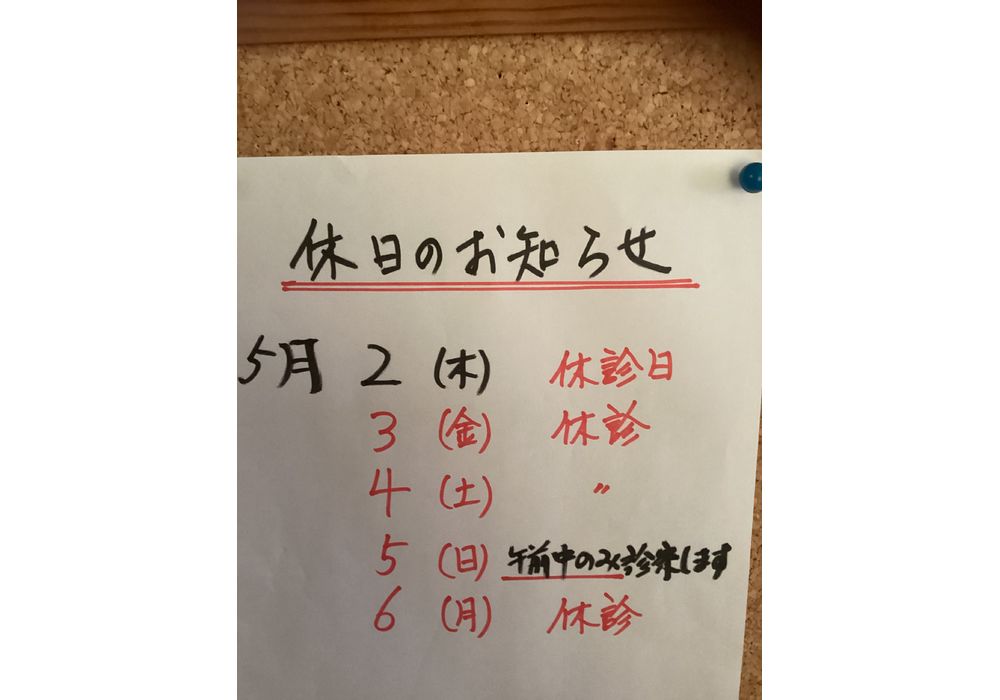 休日のお知らせ
5月 2 (木) 休診日
3 (金) 休診
4 (土) 〃
5 (日) 午前中のみ診察します
6 (月) 休診